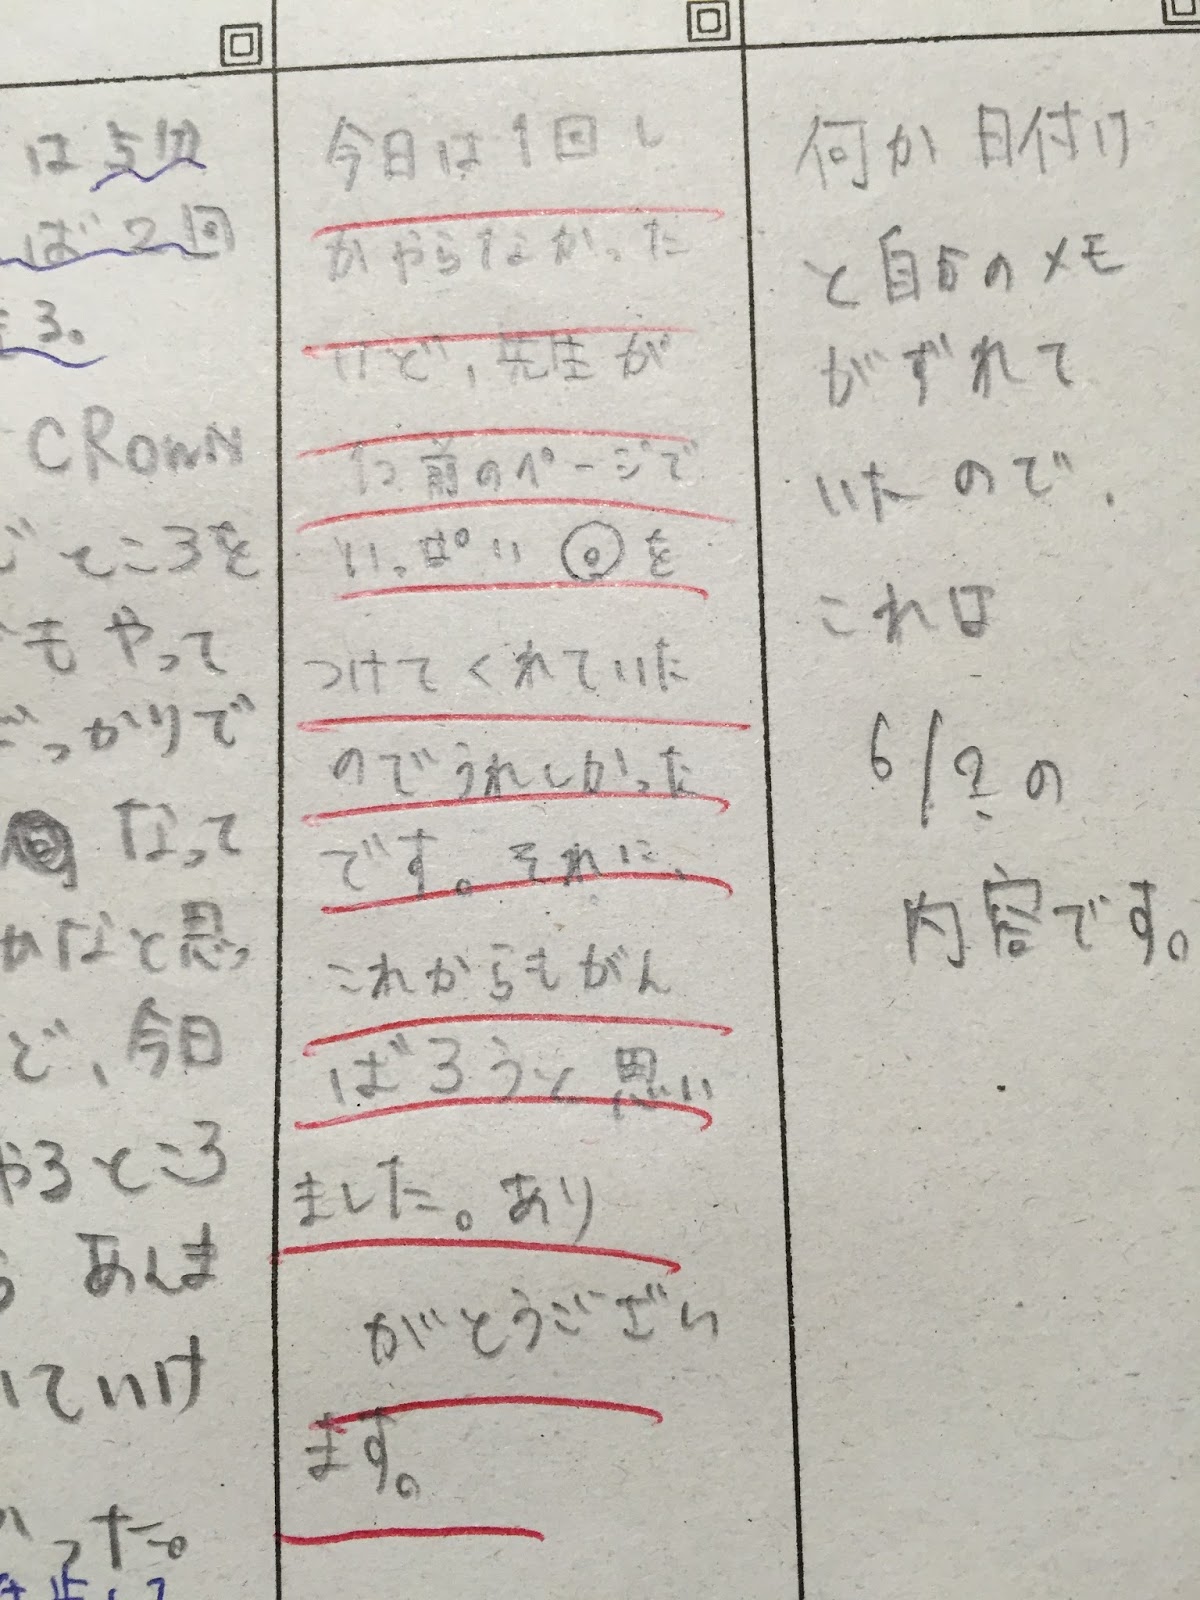 は
ば2回
る。
CRown
ところを
もやって
っかりで
なって
かなと思っ
ど、今日
やるところ
あんま
ていけ
った。
今日は1回し
かやらなかった
けど、先生が
前のページで
いっぱい◎を
つけてくれていた
のでうれしかった
です。それに、
これからもがん
ばろうと思い
ました。あり
がとうござい
ます。
何か日付け
と自分のメモ
がずれて
いたので、
これは
6/?の
内容です。